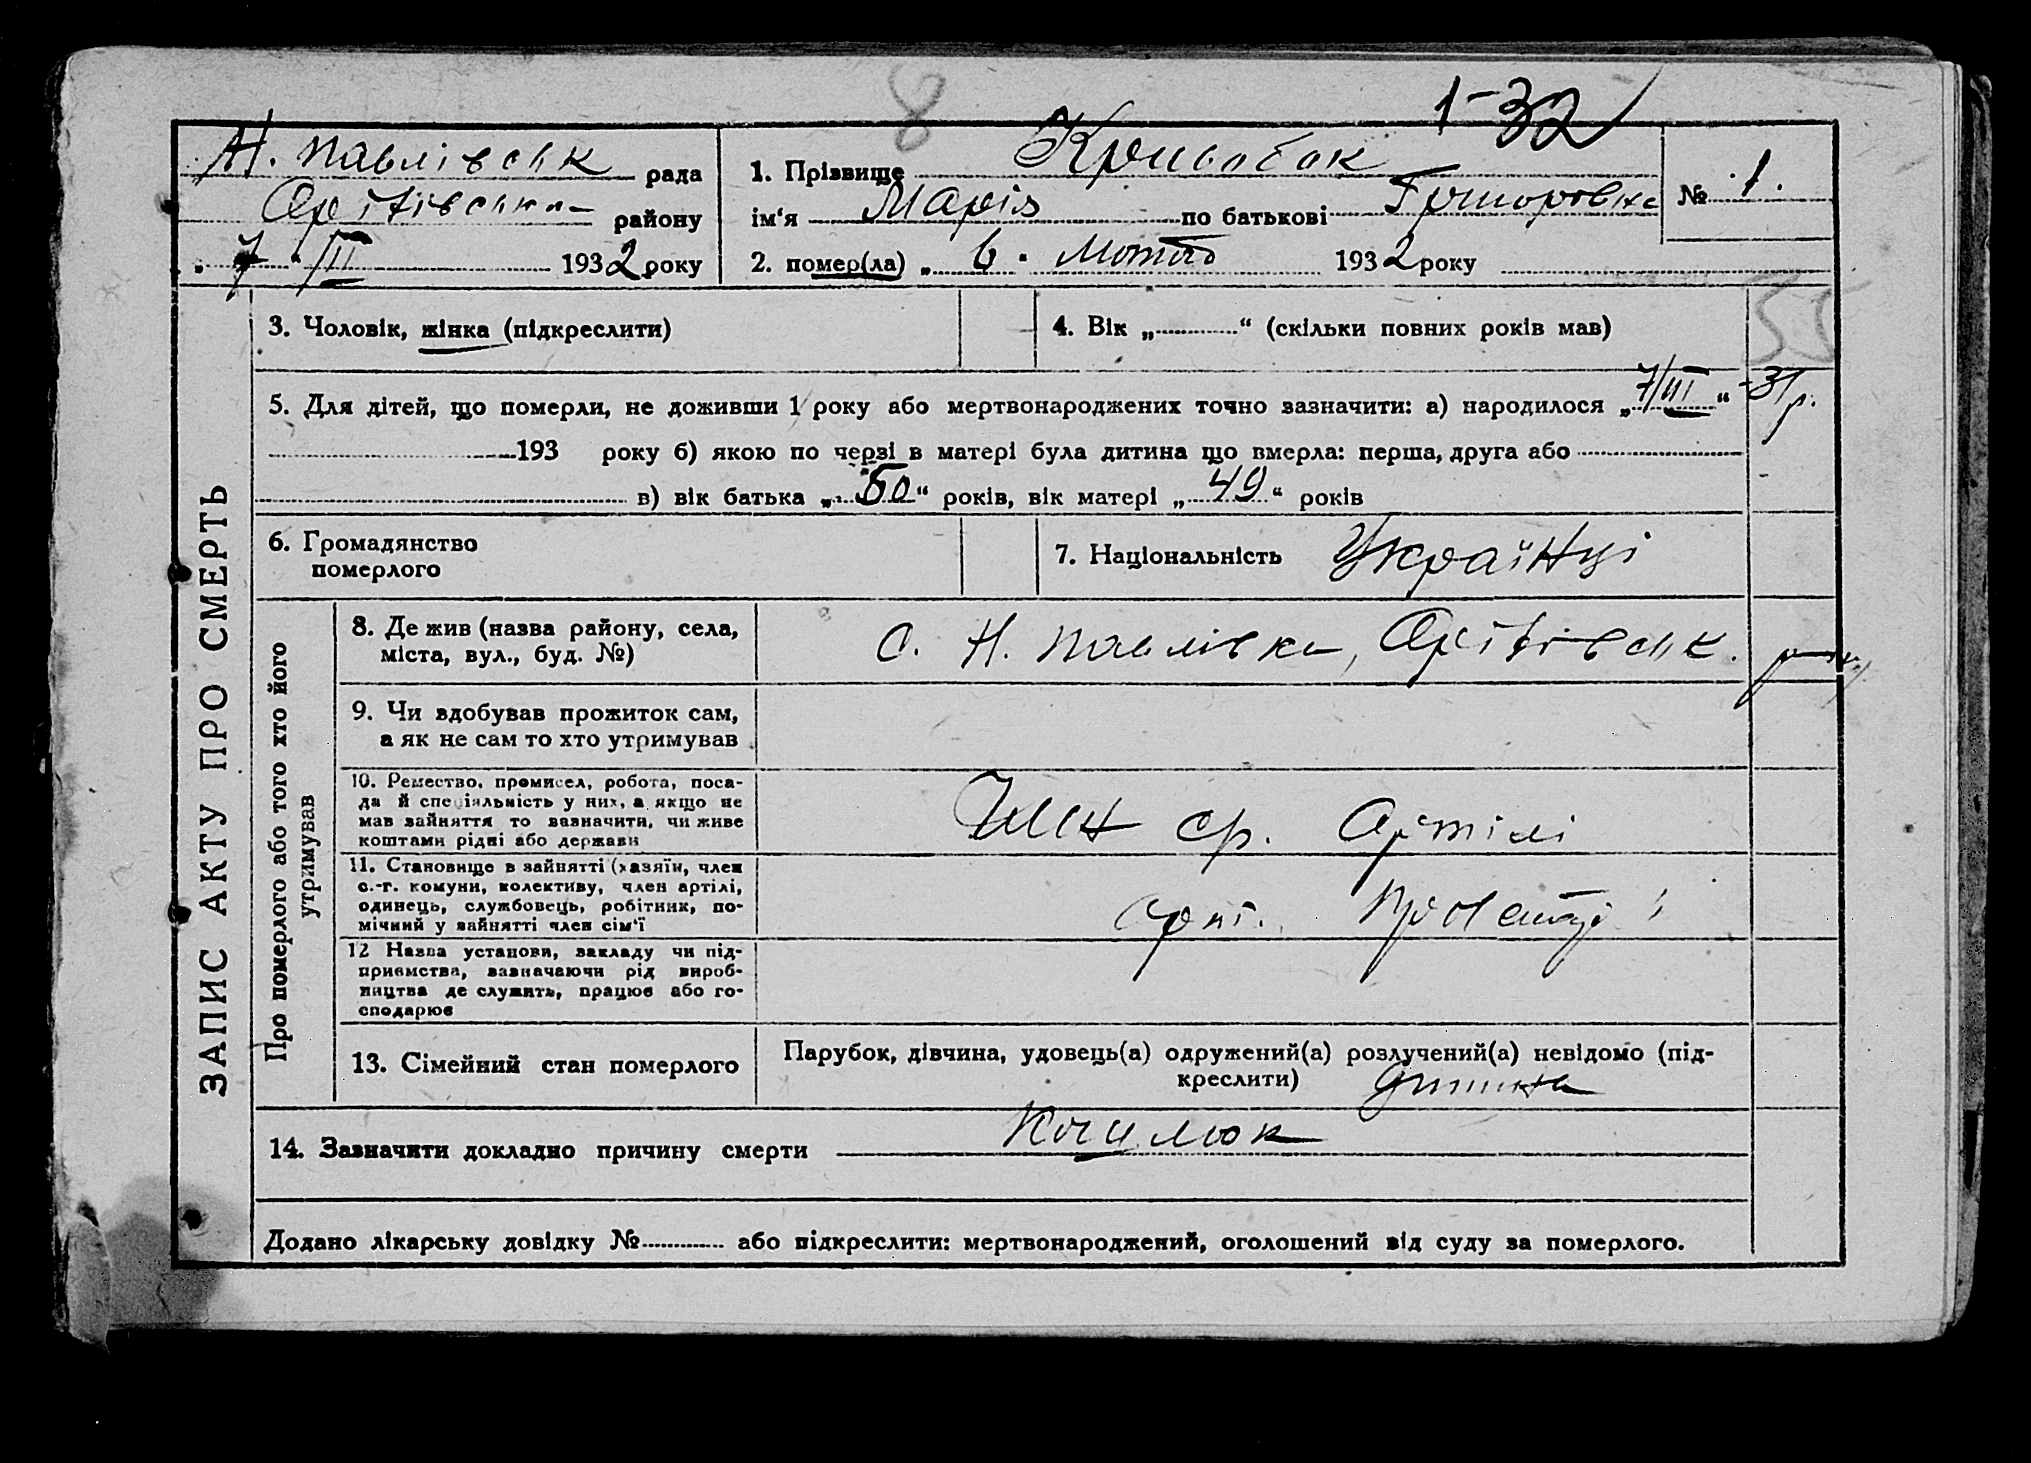 8
1-32
Н. Павлівськ рада
району
"7" III 1932 року
1. Прізвище
ім'я Марія по батькові Григоровна
№ 1.
2. помер(ла) "6" лютого 1932 року
3. Чоловік, жінка (підкреслити)
4. Вік „ “ (скільки повних років мав)
55
5. Для дітей, що померли, не доживши 1 року або мертвонароджених точно зазначити: а) народилося „7/III“ -31 р.
193 року б) якою по черзі в матері була дитина що вмерла: перша, друга або
в) вік батька „50“ років, вік матері „49“ років
6. Громадянство
померлого
7. Національність Українці
ЗАПИС АКТУ ПРО СМЕРТЬ
Про померлого або того хто його
утримував
8. Де жив (назва району, села,
міста, вул., буд. №)
с. Н. Павлівка,
9. Чи здобував прожиток сам,
а як не сам то хто утримував
10. Ремество, промисел, робота, поса-
да й спеціяльність у них, а якщо не
мав зайняття то зазначити, чи живе
коштами рідні або держави
Член ср. Артілі
11. Становище в зайнятті (хазяїн, член
с.-г. комуни, колективу, член артілі,
одинець, службовець, робітник, по-
мічний у зайнятті член сім'ї
12 Назва установи, закладу чи під-
приємства, зазначаючи рід вироб-
ництва де служить, працює або го-
сподарює
13. Сімейний стан померлого
Парубок, дівчина, удовець(а) одружений(а) розлучений(а) невідомо (під-
креслити) дитина
14. Зазначити докладно причину смерти Кашлюк
Додано лікарську довідку № або підкреслити: мертвонароджений, оголошений від суду за померлого.